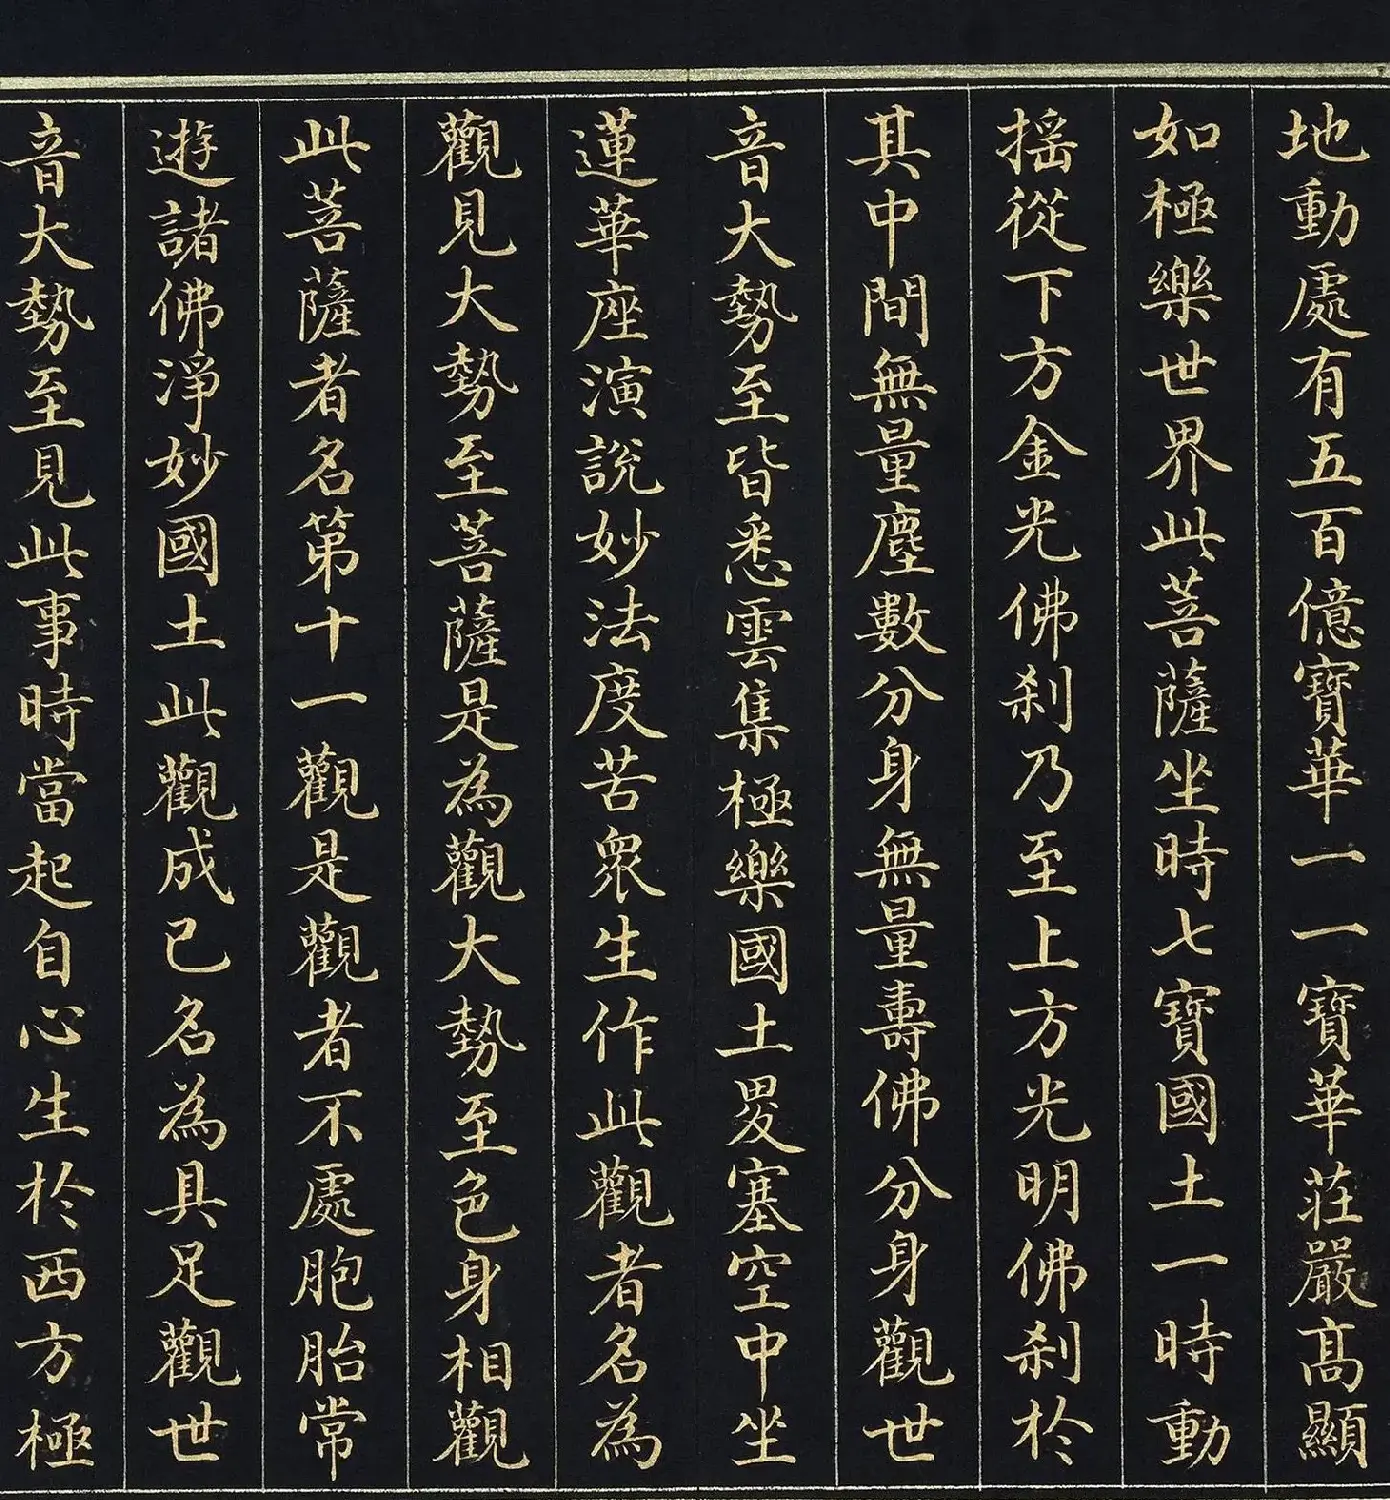 地動處有五百億寶華一一寶華莊嚴高顯
如極樂世界此菩薩坐時七寶國土一時動
搖從下方金光佛刹乃至上方光明佛刹於
其中間無量塵數分身無量壽佛分身觀世
音大勢至皆悉雲集極樂國土畟塞空中坐
蓮華座演說妙法度苦眾生作此觀者名為
觀見大勢至菩薩是為觀大勢至色身相觀
此菩薩者名第十一觀是觀者不處胞胎常
遊諸佛淨妙國土此觀成已名為具足觀世
音大勢至見此事時當起自心生於西方極